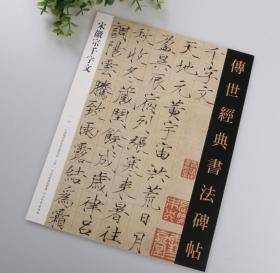 傳世經典書法碑帖
千字文
天地元黃宇宙洪荒日月
盈昃辰宿列張寒来暑往
秋收冬藏閏餘成歲律呂
調陽雲騰致雨露結為霜
宋徽宗千字文